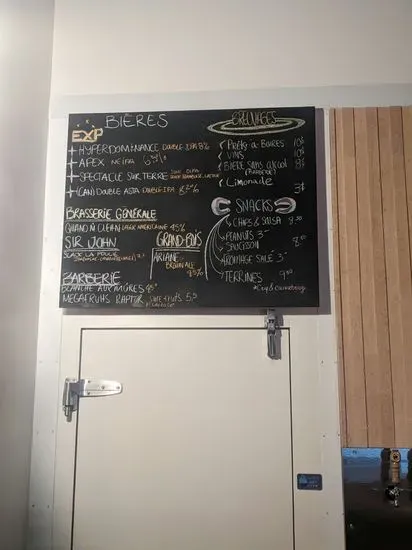 BIÈRES
EXP
+ HYPERDOMINANCE DOUBLE IPA 8%
+ APEX NEIPA
+ SPECTACLE SUR TERRE
+ (CAN) DOUBLE ASTA DOUBLE IPA
BRASSERIE GÉNÉRALE
QUAND Ô CLEAN LAGER AMÉRICAINE 4.5%
SIR JOHN
SLACK LA POULE
GRAND BOIS
ARIANE
BARBERIE
BLANCHE AUX MÛRES
MEGAFRUHS RAPTOR 5.5
BREUVAGES
PRÊTS-À-BOIRES 10$
VINS 10$
BIÈRE SANS ALCOOL 8$
(BARBERIE)
LIMONADE 3$
SNACKS
CHIPS & SALSA 8.50
PEANUTS 3-
SAUCISSON 8.00
FROMAGE SALÉ 3-
TERRINES 9.50